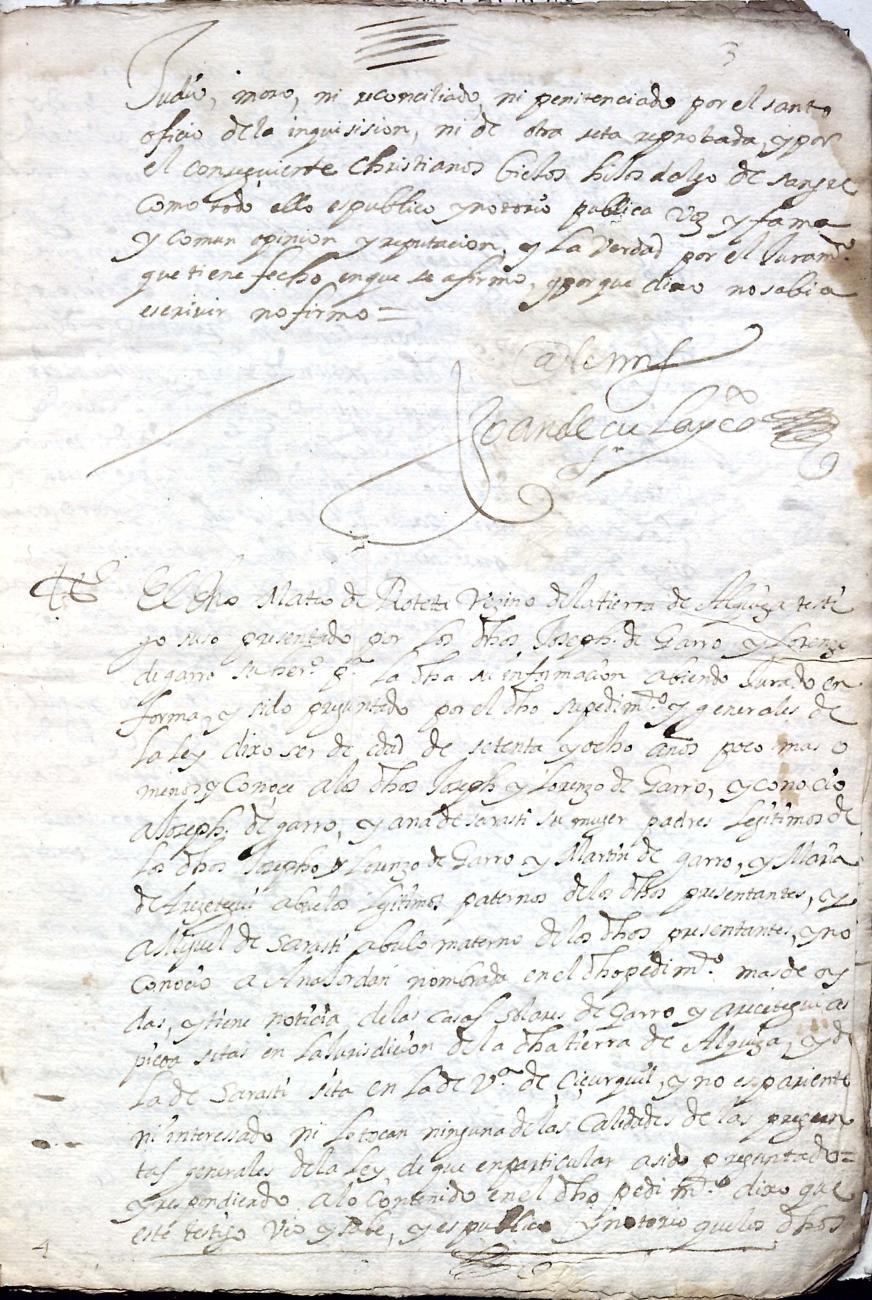 3
Judio, moro, ni reconciliado, ni penitenciado por el santo
oficio de la inquisision, ni de otra seta reprobada, y por
el consiguiente Christianos biejos hijos dalgo de sangre
como todo ello es publico y notorio publica voz y fama
y comun opinion y reputacion, y la verdad por el Juramto.
que tiene fecho, en que se afirmo, y porque dixo no sabia
escrivir no firmo =
Ante my
Joan de
tº
El dho Mateo de Roteta Vezino de la tierra de Alquiza testi
go suso presentado por los dhos Joseph de Garro y Lorenzo
de garro su hero. pa. la dha su informacion abiendo Jurado en
forma, y sido preguntado por el dho su pedimto. y generales de
la ley dixo ser de edad de setenta y ocho años poco mas o
menos y Conoce a los dhos Joseph y Lorenzo de Garro, y conocio
a Joseph de garro, y ana de sarasti su muger padres legitimos de
los dhos Josepho y Lorenzo de Garro y Martin de garro, y Maria
de abuelos legitimos paternos de los dhos presentantes, y
a Miguel de Sarasti abuelo materno de los dhos presentantes, y no
Conocio a Ana Jordan nombrada en el dho pedimto. mas de oy
das, y tiene noticia de las casas solares de Garro y as
picoa sitas en la Jurisdicion de la dha tierra de Alquiza, y de
la de Sarasti sita en la de Va. de Cicurquil, y no es pariente
ni interessado ni le tocan ninguna de las Calidades de las pregun
tas generales de la ley de que en particular a sido preguntado =
y respondiendo a lo Contenido en el dho pedimto. dixo que
este testigo vio y sabe, y es publico y notorio que los dhos
4